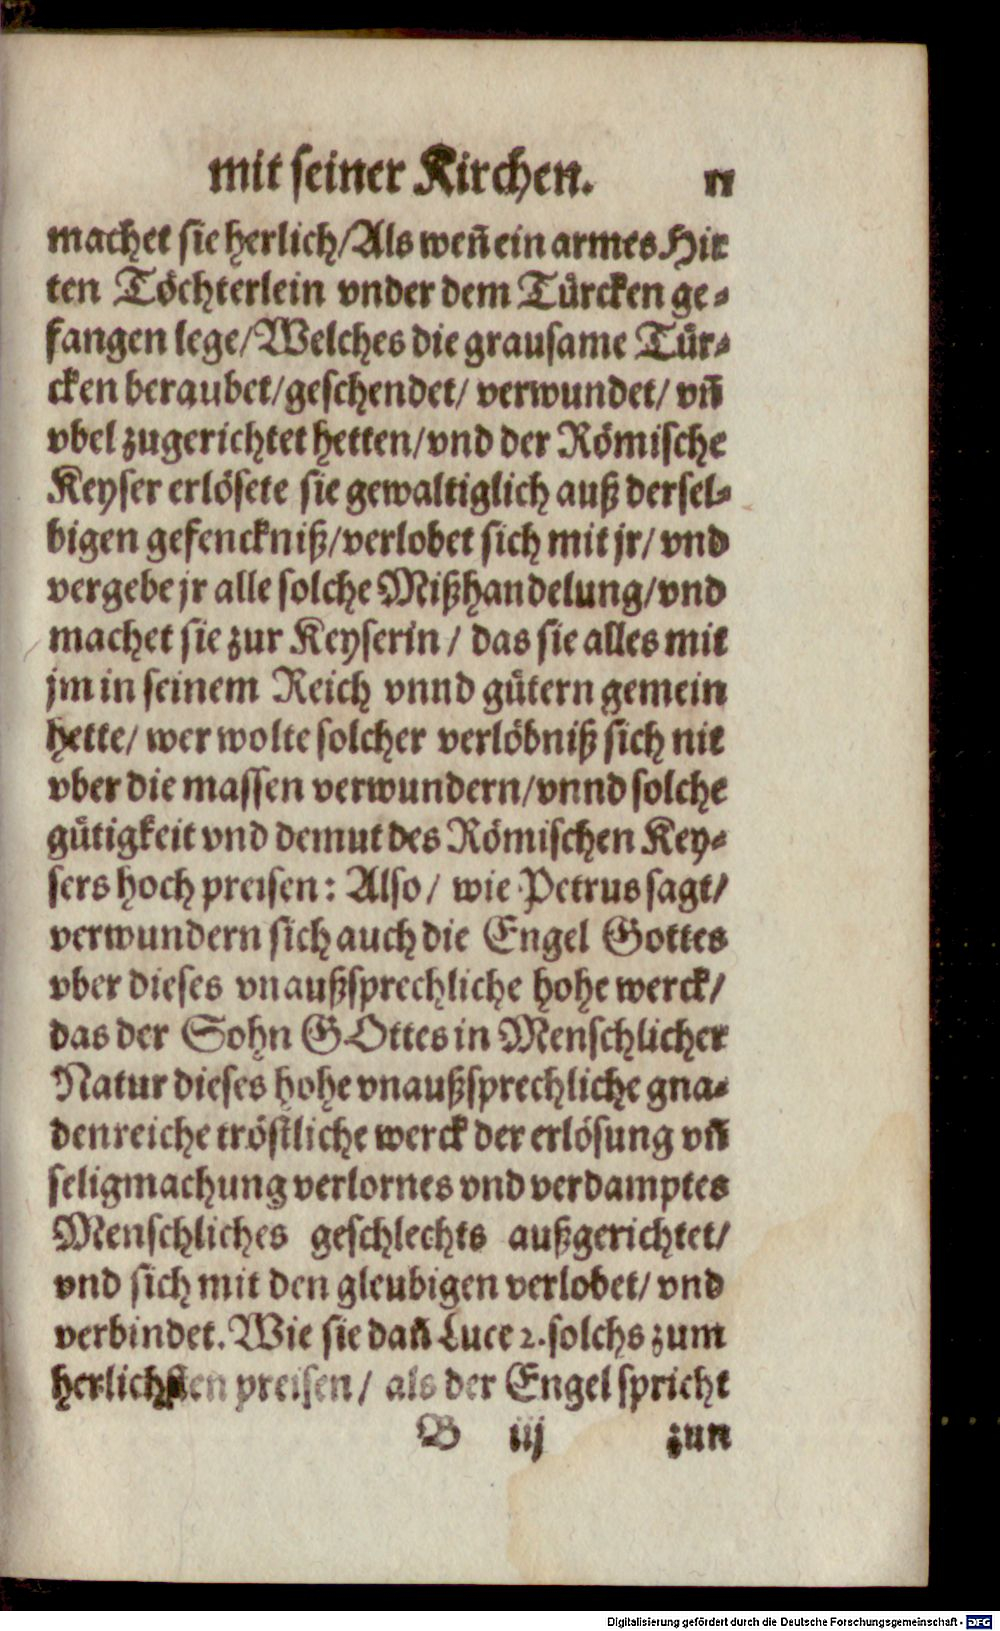 mit seiner Kirchen. 11
machet sie herlich/Als weñ ein armes Hir
ten Töchterlein vnder dem Türcken ge-
fangen lege/Welches die grausame Tür-
cken beraubet/geschendet/ verwundet/ vñ
vbel zugerichtet hetten/vnd der Römische
Keyser erlösete sie gewaltiglich auß dersel-
bigen gefenckniß/verlobet sich mit jr/ vnd
vergebe jr alle solche Mißhandelung/vnd
machet sie zur Keyserin/ das sie alles mit
jm in seinem Reich vnnd gütern gemein
hette/ wer wolte solcher verlöbniß sich nit
vber die massen verwundern/vnnd solche
gütigkeit vnd demut des Römischen Key-
sers hoch preisen: Also/ wie Petrus sagt/
verwundern sich auch die Engel Gottes
vber dieses vnaußsprechliche hohe werck/
das der Sohn GOttes in Menschlicher
Natur dieses hohe vnaußsprechliche gna-
denreiche tröstliche werck der erlösung vñ
seligmachung verlornes vnd verdamptes
Menschliches geschlechts außgerichtet/
vnd sich mit den gleubigen verlobet/ vnd
verbindet. Wie sie dañ Luce 2. solchs zum
herlichsten preisen/ als der Engel spricht
B iij zun
Digitalisierung gefördert durch die Deutsche Forschungsgemeinschaft - DFG